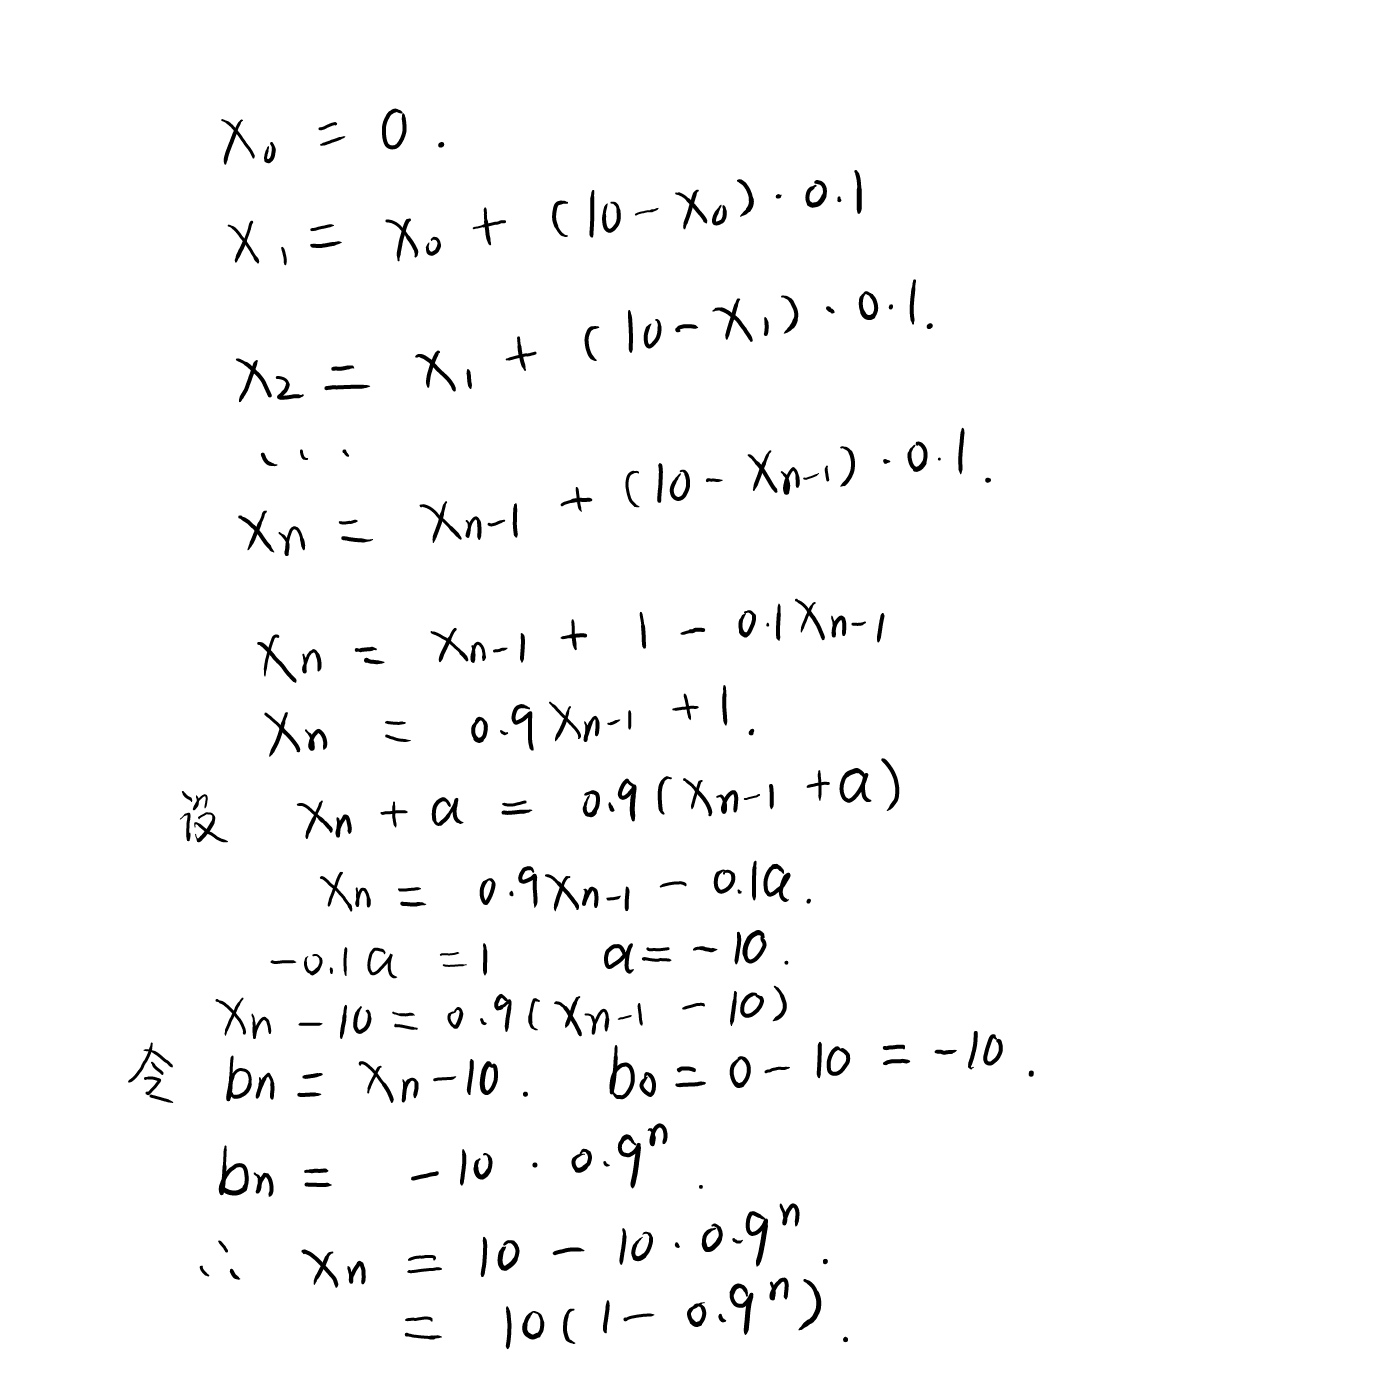 x₀ = 0 .
x₁ = x₀ + (10 - x₀) · 0.1
x₂ = x₁ + (10 - x₁) · 0.1.
...
xₙ = xₙ₋₁ + (10 - xₙ₋₁) · 0.1.
xₙ = xₙ₋₁ + 1 - 0.1xₙ₋₁
xₙ = 0.9xₙ₋₁ + 1.
设 xₙ + a = 0.9(xₙ₋₁ + a)
xₙ = 0.9xₙ₋₁ - 0.1a.
-0.1a = 1 a = -10.
xₙ - 10 = 0.9(xₙ₋₁ - 10)
令 bₙ = xₙ - 10. b₀ = 0 - 10 = -10.
bₙ = -10 · 0.9ⁿ.
∴ xₙ = 10 - 10 · 0.9ⁿ.
= 10(1 - 0.9ⁿ).